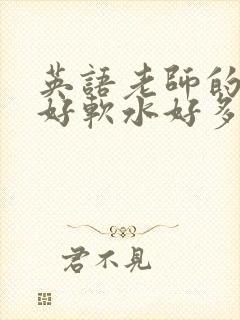 英語老師的
好軟水好多
君不見